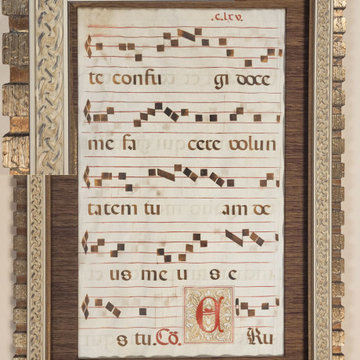 .c.lxv.
te confu gi doce
me fa cere volun
tatem tu am de
us me u s e
s tu. Cō. A Ru